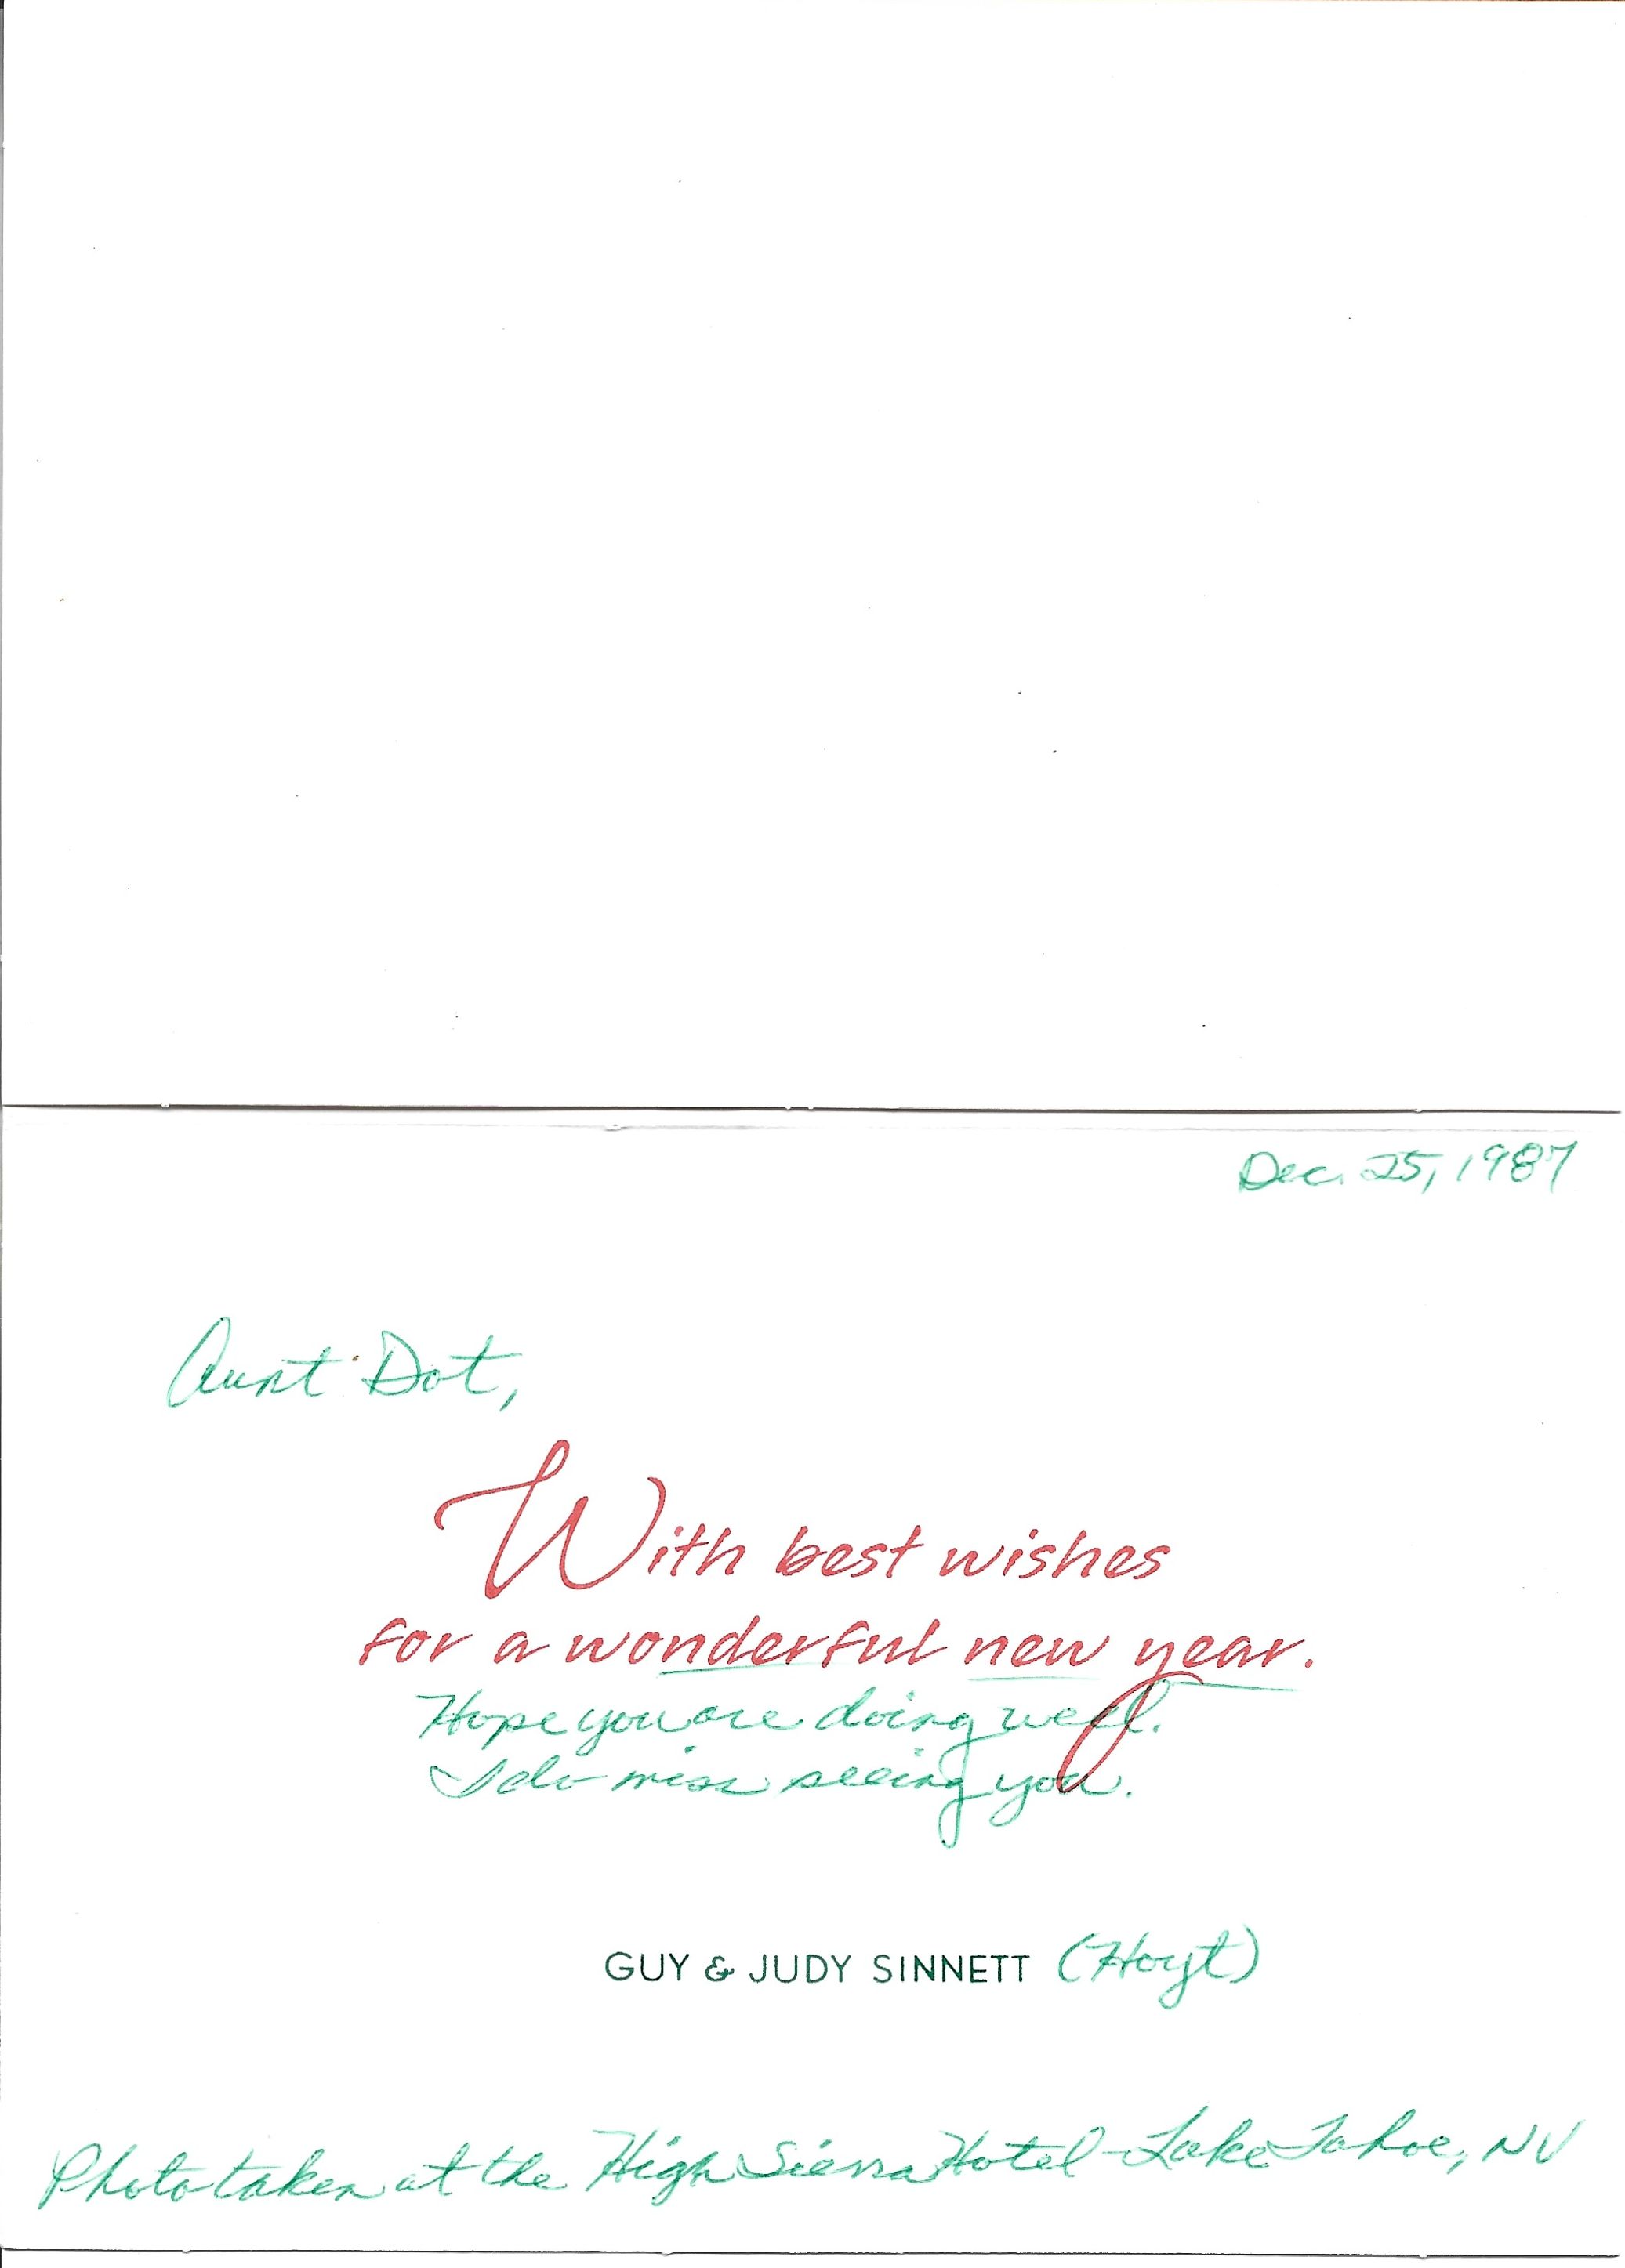 Dec. 25, 1987
Aunt Dot,
With best wishes
for a wonderful new year.
Hope you are doing well.
I do miss seeing you.
GUY & JUDY SINNETT (Hoyt)
Photo taken at the High Sierra Hotel - Lake Tahoe, NV